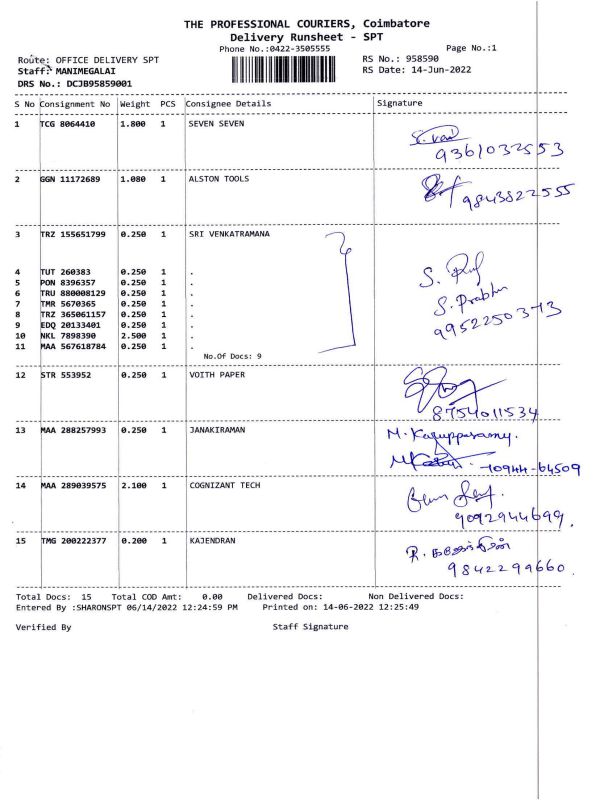 THE PROFESSIONAL COURIERS, Coimbatore
Delivery Runsheet - SPT
Phone No.:0422-3505555 Page No.:1
Route: OFFICE DELIVERY SPT RS No.: 958590
Staff: MANIMEGALAI RS Date: 14-Jun-2022
DRS No.: DCJB95859001
S No Consignment No Weight PCS Consignee Details Signature
1 TCG 8064410 1.800 1 SEVEN SEVEN
9361032553
2 GGN 11172689 1.080 1 ALSTON TOOLS
9843822555
3 TRZ 155651799 0.250 1 SRI VENKATRAMANA
4 TUT 260383 0.250 1 .
5 PON 8396357 0.250 1 .
6 TRU 880008129 0.250 1 . S. Prabhu
7 TMR 5670365 0.250 1 .
8 TRZ 365061157 0.250 1 . 9952250373
9 EDQ 20133401 0.250 1 .
10 NKL 7898390 2.500 1 .
11 MAA 567618784 0.250 1 .
No.Of Docs: 9
12 STR 553952 0.250 1 VOITH PAPER
8754011534
13 MAA 288257993 0.250 1 JANAKIRAMAN M. Karuppusamy.
70944-64509
14 MAA 289039575 2.100 1 COGNIZANT TECH
9092944699.
15 TMG 200222377 0.200 1 KAJENDRAN
9842299660.
Total Docs: 15 Total COD Amt: 0.00 Delivered Docs: Non Delivered Docs:
Entered By :SHARONSPT 06/14/2022 12:24:59 PM Printed on: 14-06-2022 12:25:49
Verified By Staff Signature